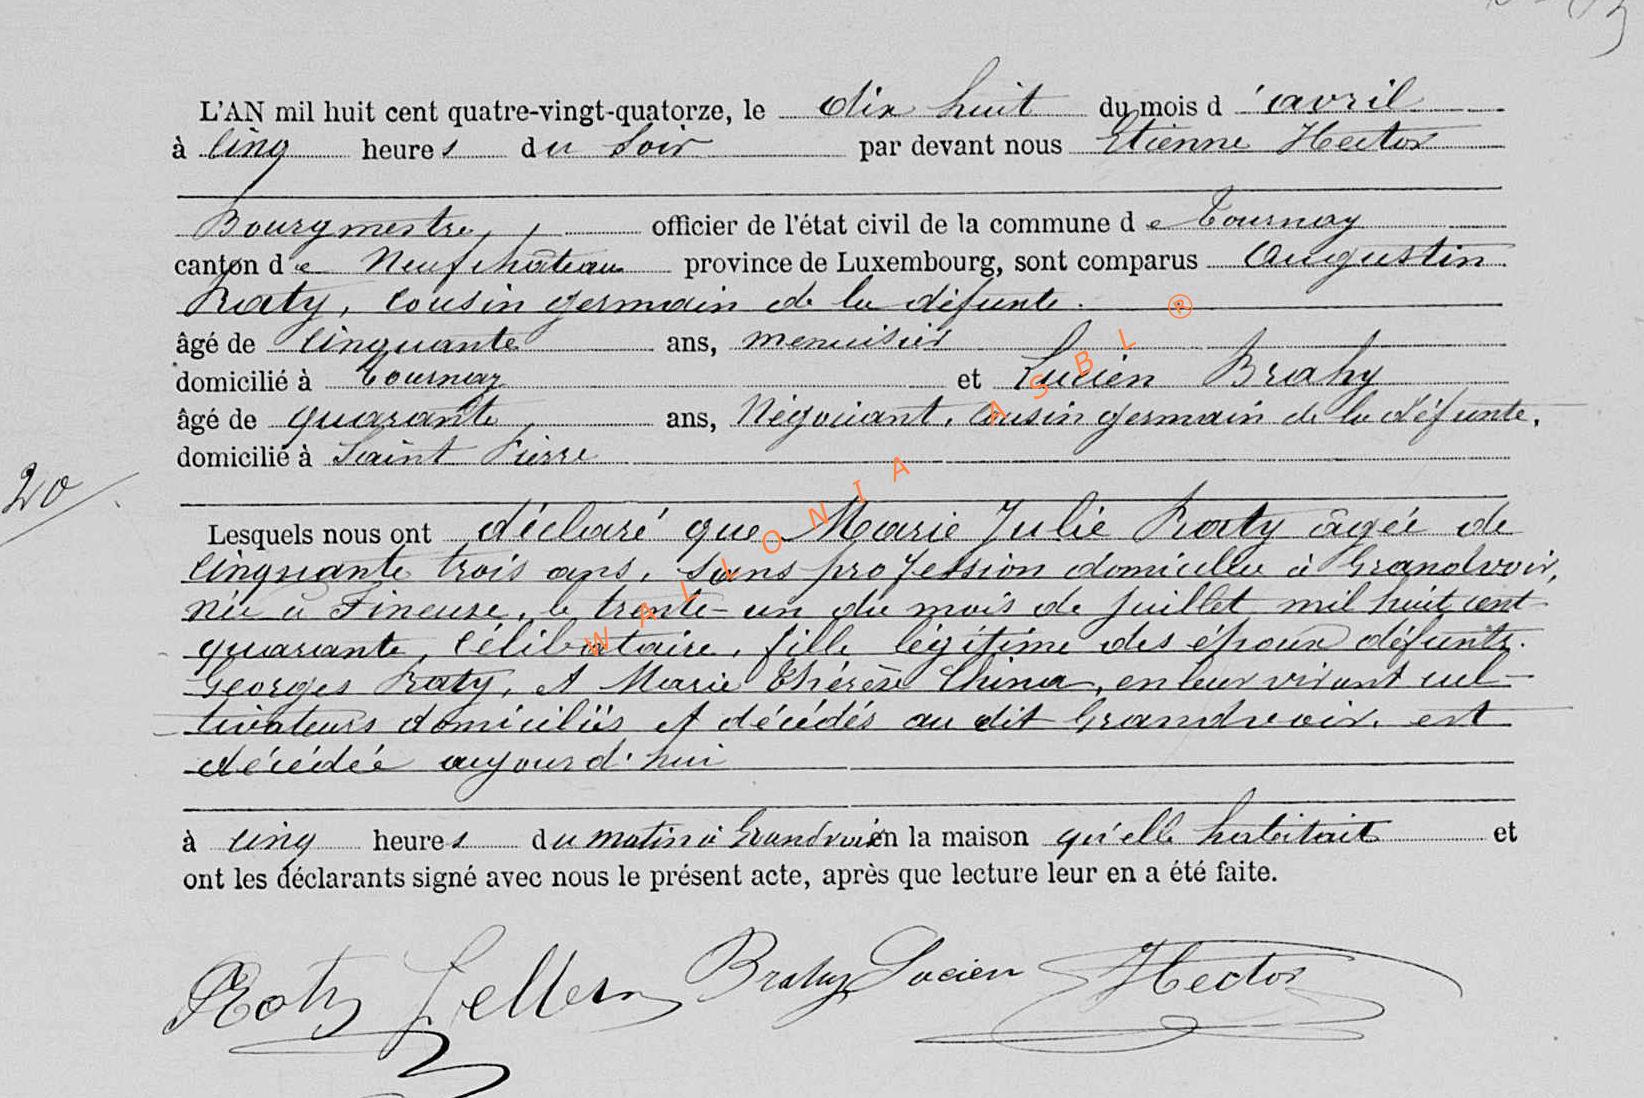 L'AN mil huit cent quatre-vingt-quatorze, le dix huit du mois d'avril
à cinq heures du soir par devant nous Etienne Hector
Bourgmestre, officier de l'état civil de la commune de Tournay
canton de Neufchâteau province de Luxembourg, sont comparus Augustin
Raty, cousin germain de la défunte.
âgé de cinquante ans, menuisier
domicilié à Tournay et Lucien Brahy
âgé de quarante ans, Négociant, cousin germain de la défunte,
domicilié à Saint Pierre
20
Lesquels nous ont déclaré que Marie Julie Raty âgée de
cinquante trois ans, sans profession domiciliée à Grandvoir,
née à Fineuse, le trente-un du mois de juillet mil huit cent
quarante, célibataire, fille légitime des époux défunts.
Georges Raty, et Marie Thérèse China, en leur vivant cul-
tivateurs domiciliés et décédés au dit Grandvoir, est
décédée aujourd'hui
à cinq heures du matin à Grandvoir en la maison qu'elle habitait et
ont les déclarants signé avec nous le présent acte, après que lecture leur en a été faite.
Raty Brahy Lucien Hector
WALLONIA ASBL ®